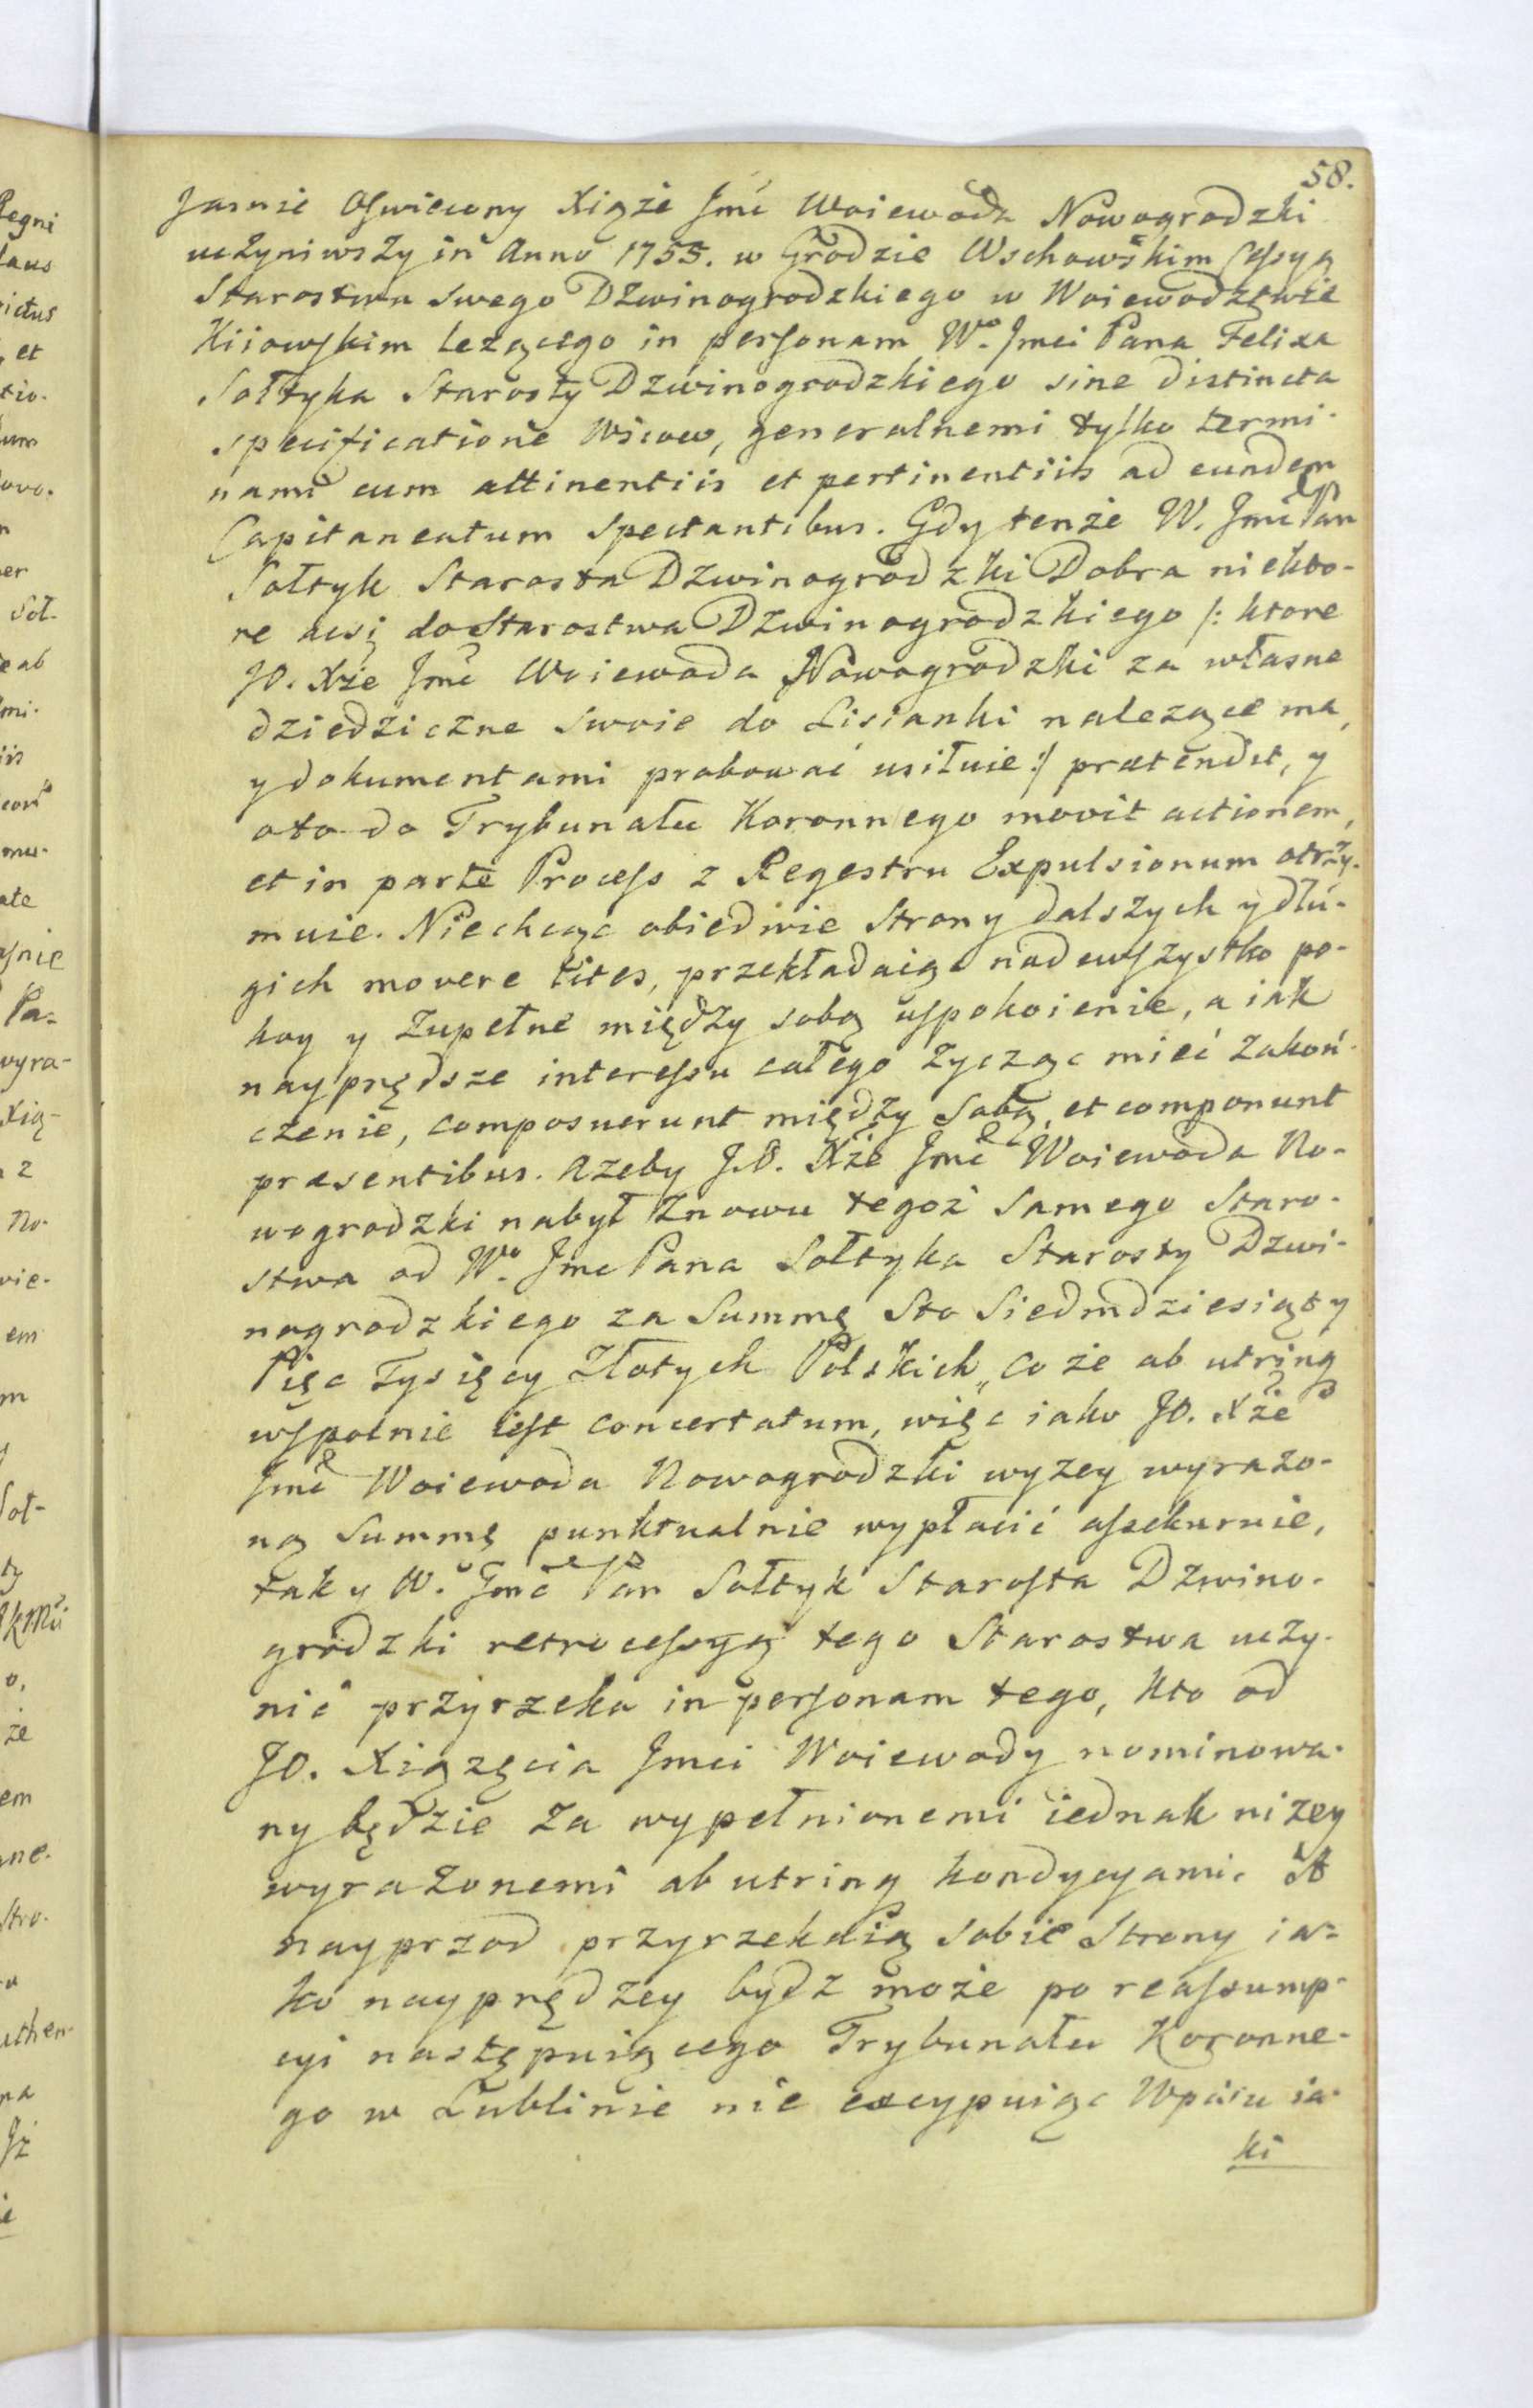 58.
Jasnie Oswiecony Xiąże Jmć Woiewoda Nowogrodzki
uczyniwszy in Anno 1755. w Grodzie Wschowskim Cessyą
Starostwa swego Dzwinogrodzkiego w Woiewodztwie
Kiiowskim lezącego in personam Wo. Jmci Pana Felixa
Sołtyka Starosty Dzwinogrodzkiego sine distincta
specificatione Wsiow, generalnemi tylko termi-
nami cum attinentiis et pertinentiis ad eundem
Capitaneatum spectantibus. Gdy tenże W. Jmć Pan
Sołtyk Starosta Dzwinogrodzki Dobra niekto-
re acsi do Starostwa Dzwinogrodzkiego /: ktore
JO. Xże Jmć Woiewoda Nowogrodzki za własne
dziedziczne swoie do Lisianki nalezące ma,
y dokumentami probować usiłuie :/ prætendit, y
oto do Trybunału Koronnego movit actionem,
et in parte Process z Regestru Expulsionum otrzy-
muie. Niechcąc obiedwie Strony dalszych y dłu-
gich movere lites, przekładaiąc nadewszystko po-
koy y Zupełne między sobą uspokoienie, a iak
nayprędsze interessu całego Zycząc mieć Zakoń-
czenie, composuerunt między Sobą, et componunt
præsentibus. Azeby J.O. Xże Jmć Woiewoda No-
wogrodzki nabył Znowu tegoż samego Staro-
stwa od Wo. Jmc Pana Sołtyka Starosty Dzwi-
nogrodzkiego za Summę Sto Siedmdziesiąt y
Pięc Tysięcy Złotych Polskich, co że ab utrinq
wspolnie iest concertatum, więc iako JO. Xże
Jmć Woiewoda Nowogrodzki wyzey wyrazo-
ną Summę punktualnie wypłacić assekuruie,
tak y W. Jmć Pan Sołtyk Starosta Dzwino-
grodzki retrocessyą tego Starostwa uczy-
nić przyrzeka in personam tego, kto od
JO. Xiązęcia Jmci Woiewody nominowa-
ny będzie Za wypełnionemi iednak nizey
wyrazonemi ab utrinq kondycyami. A
nayprzod przyrzekaią sobie Strony ia-
ko nayprędzey bydz może po reassump-
cyi następuiącego Trybunału Koronne-
go w Lublinie nie excypuiąc Wpisu ia-
ki